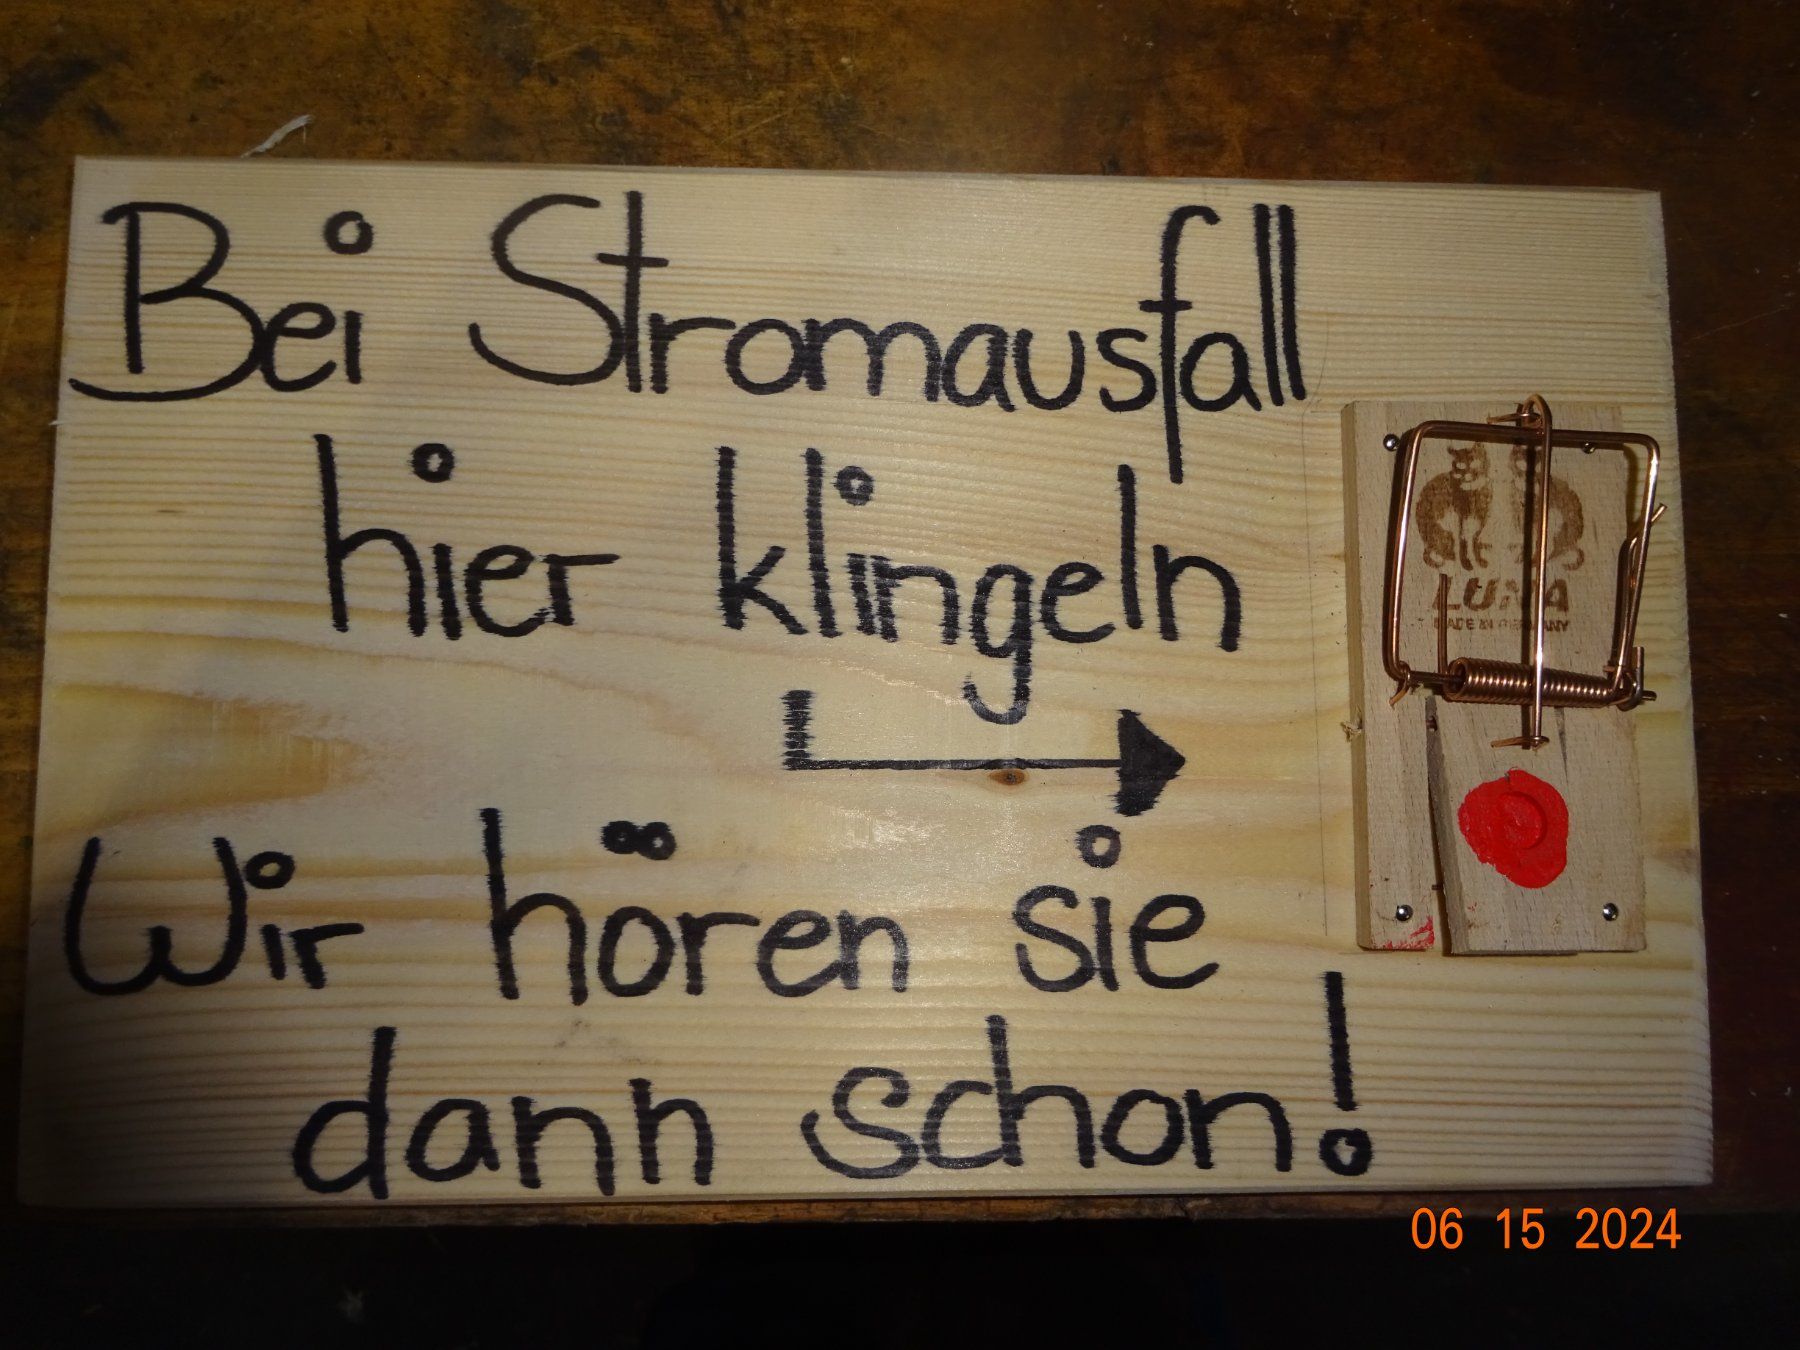 Bei Stromausfall
hier klingeln
Wir hören sie
dann schon!
LUNA
MADE IN GERMANY
06 15 2024